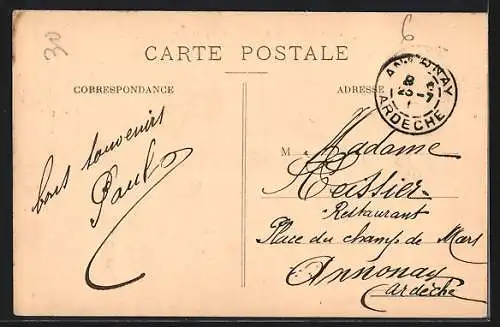 30
6
CARTE POSTALE
CORRESPONDANCE
ADRESSE
ANNONAY
8
25-7
ARDÈCHE
bons souvenirs
Paul
M Madame
Restaurant
Place du champ de Mars
Annonay
Ardèche